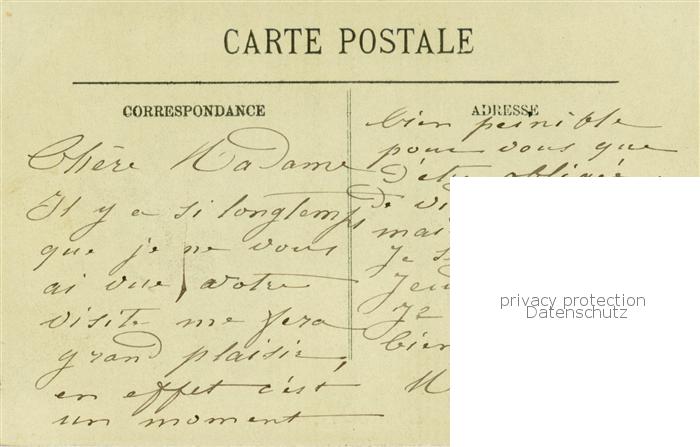 CARTE POSTALE
CORRESPONDANCE
Chère Madame
Il y a si longtemps
que je ne vous
ai vue, votre
visite me fera
grand plaisir,
en effet c'est
un moment
ADRESSE
bien peinible
pour vous que
d'être obligée
de vi
mais
Je s
Jeud
Je
bien
M
privacy protection
Datenschutz